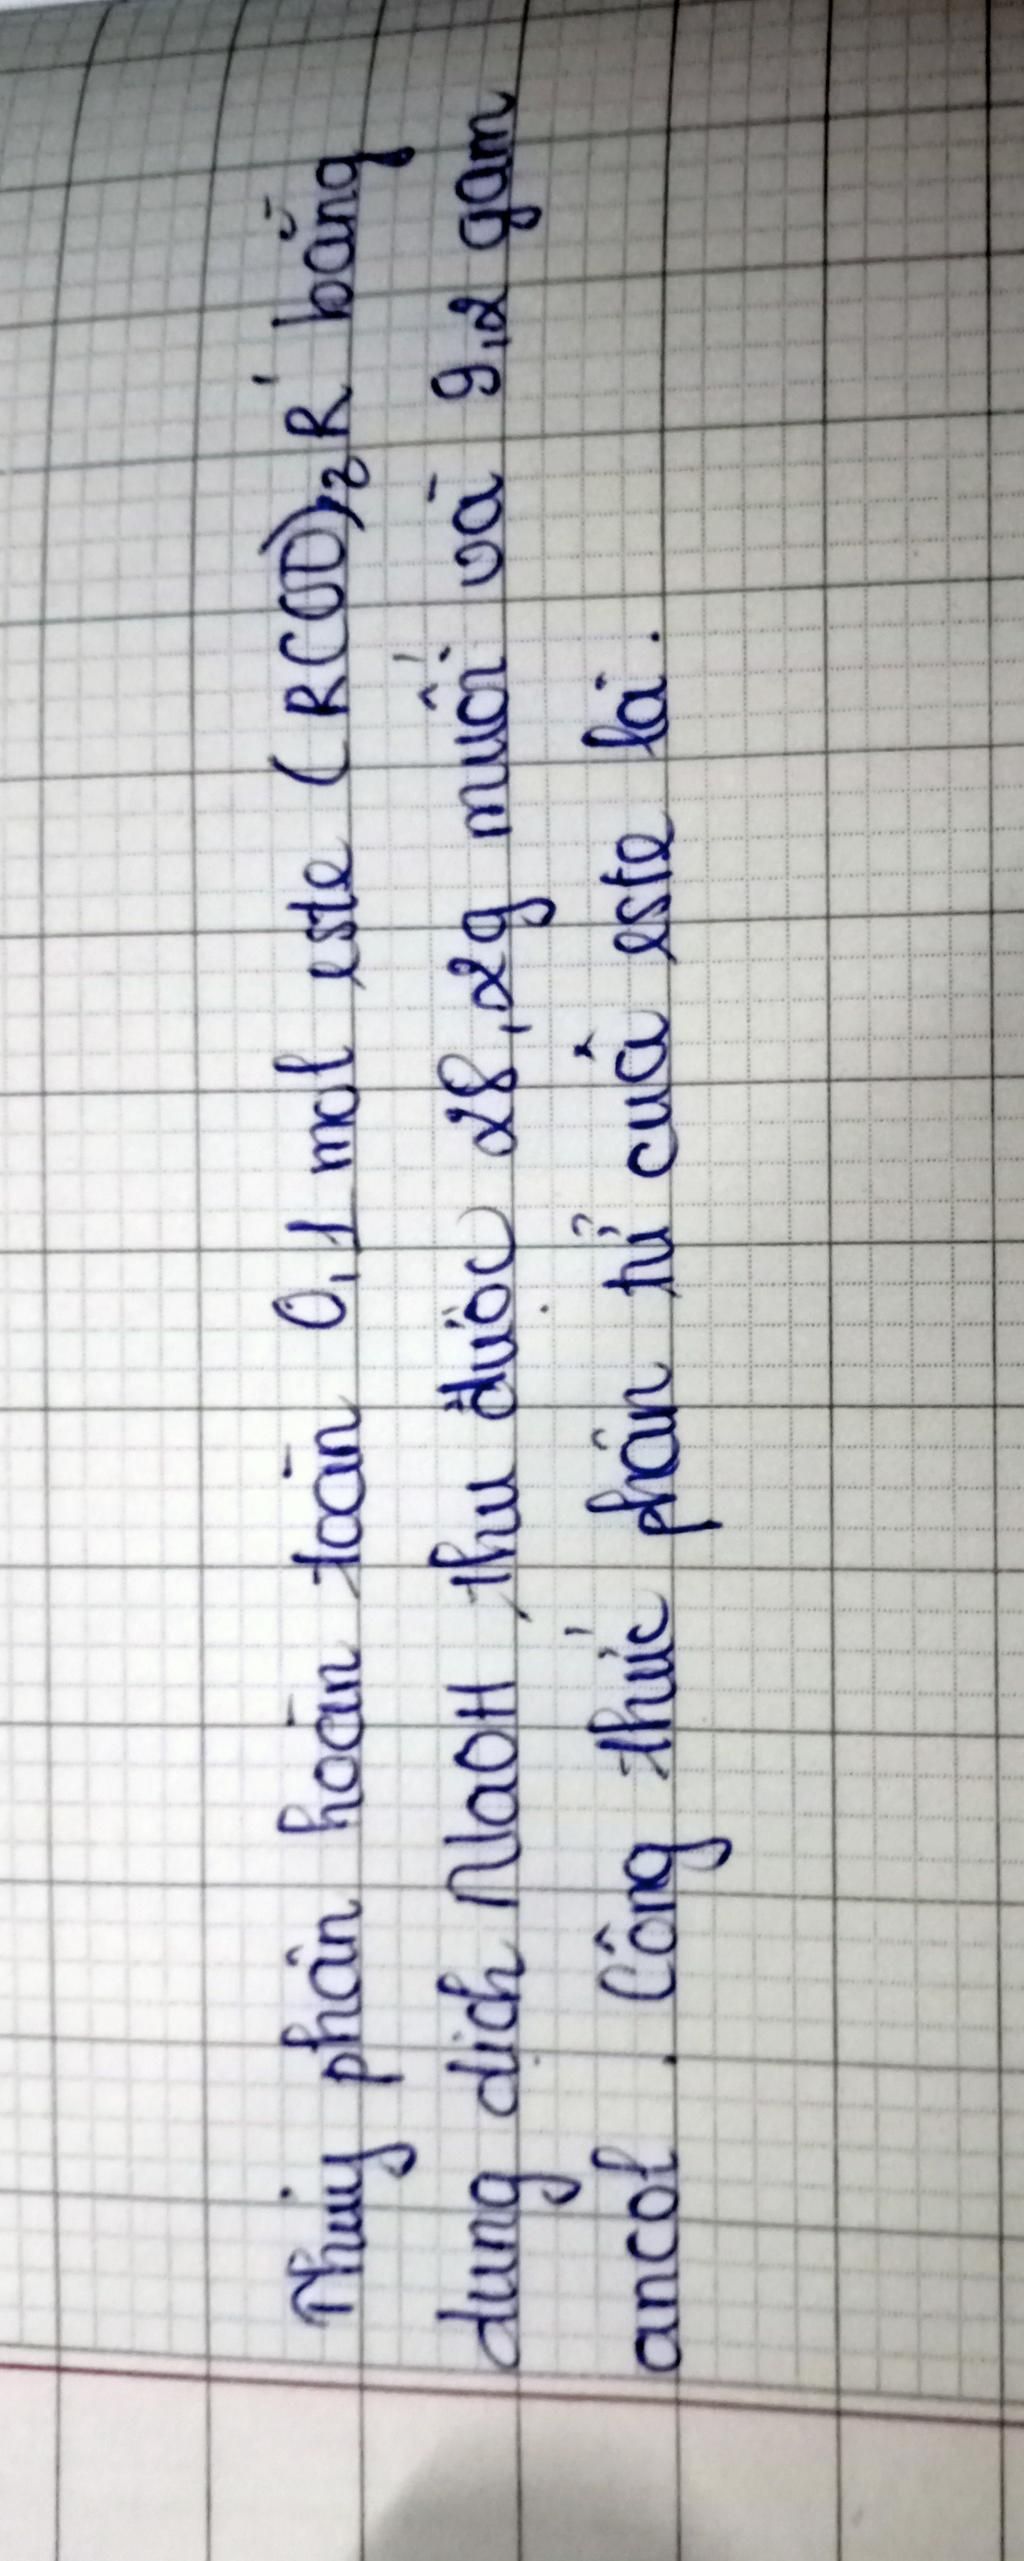 Thủy phân hoàn toàn 0,1 mol este (RCOO)2R' bằng
dung dịch NaOH thu được 28,2g muối và 9,2 gam
ancol. Công thức phân tử của este là.